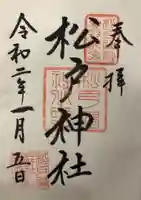 奉拝
松戸神社
令和二年一月五日